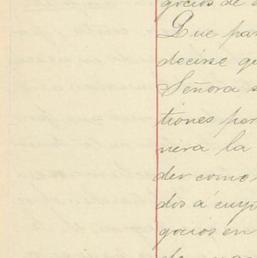 gocios de
Que par
decirse q
Señora s
tiones per
nera la
der como
dos á cuyo
gocios en